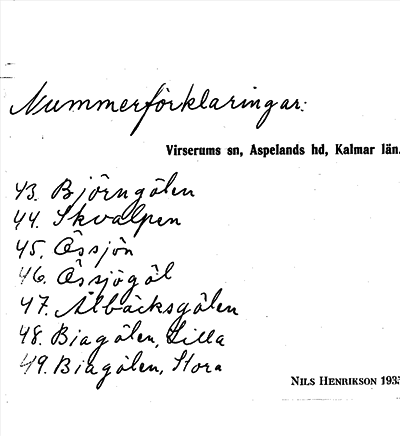 Nummerförklaringar:
Virserums sn, Aspelands hd, Kalmar län.
43. Björngölen
44. Skvalpen
45. Össjön
46. Össjögöl
47. Älbäcksgölen
48. Biagölen, Lilla
49. Biagölen, Stora
NILS HENRIKSON 1935